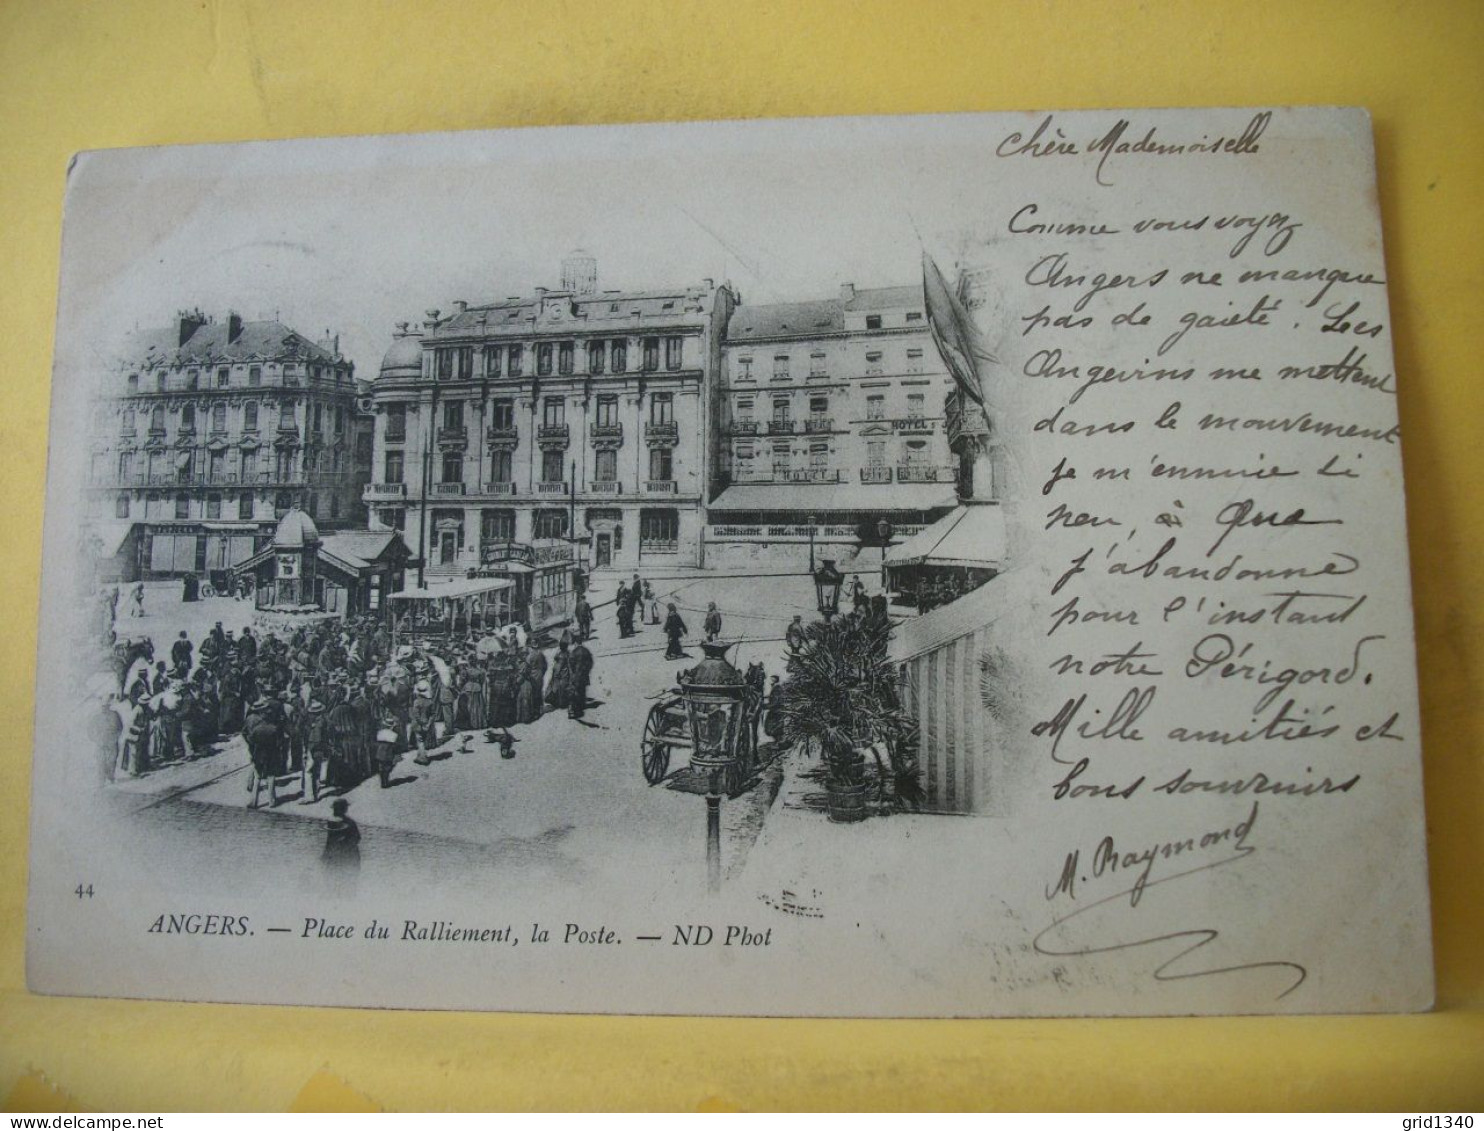 chère Mademoiselle
Comme vous voyez
Angers ne manque
pas de gaieté. Les
Angevins me mettent
dans le mouvement
je m'ennuie si
peu, à Que
j'abandonne
pour l'instant
notre Périgord.
Mille amitiés et
bons souvenirs
M. Raymond
HOTEL
44
ANGERS. — Place du Ralliement, la Poste. — ND Phot
delcampe.net
grid1340